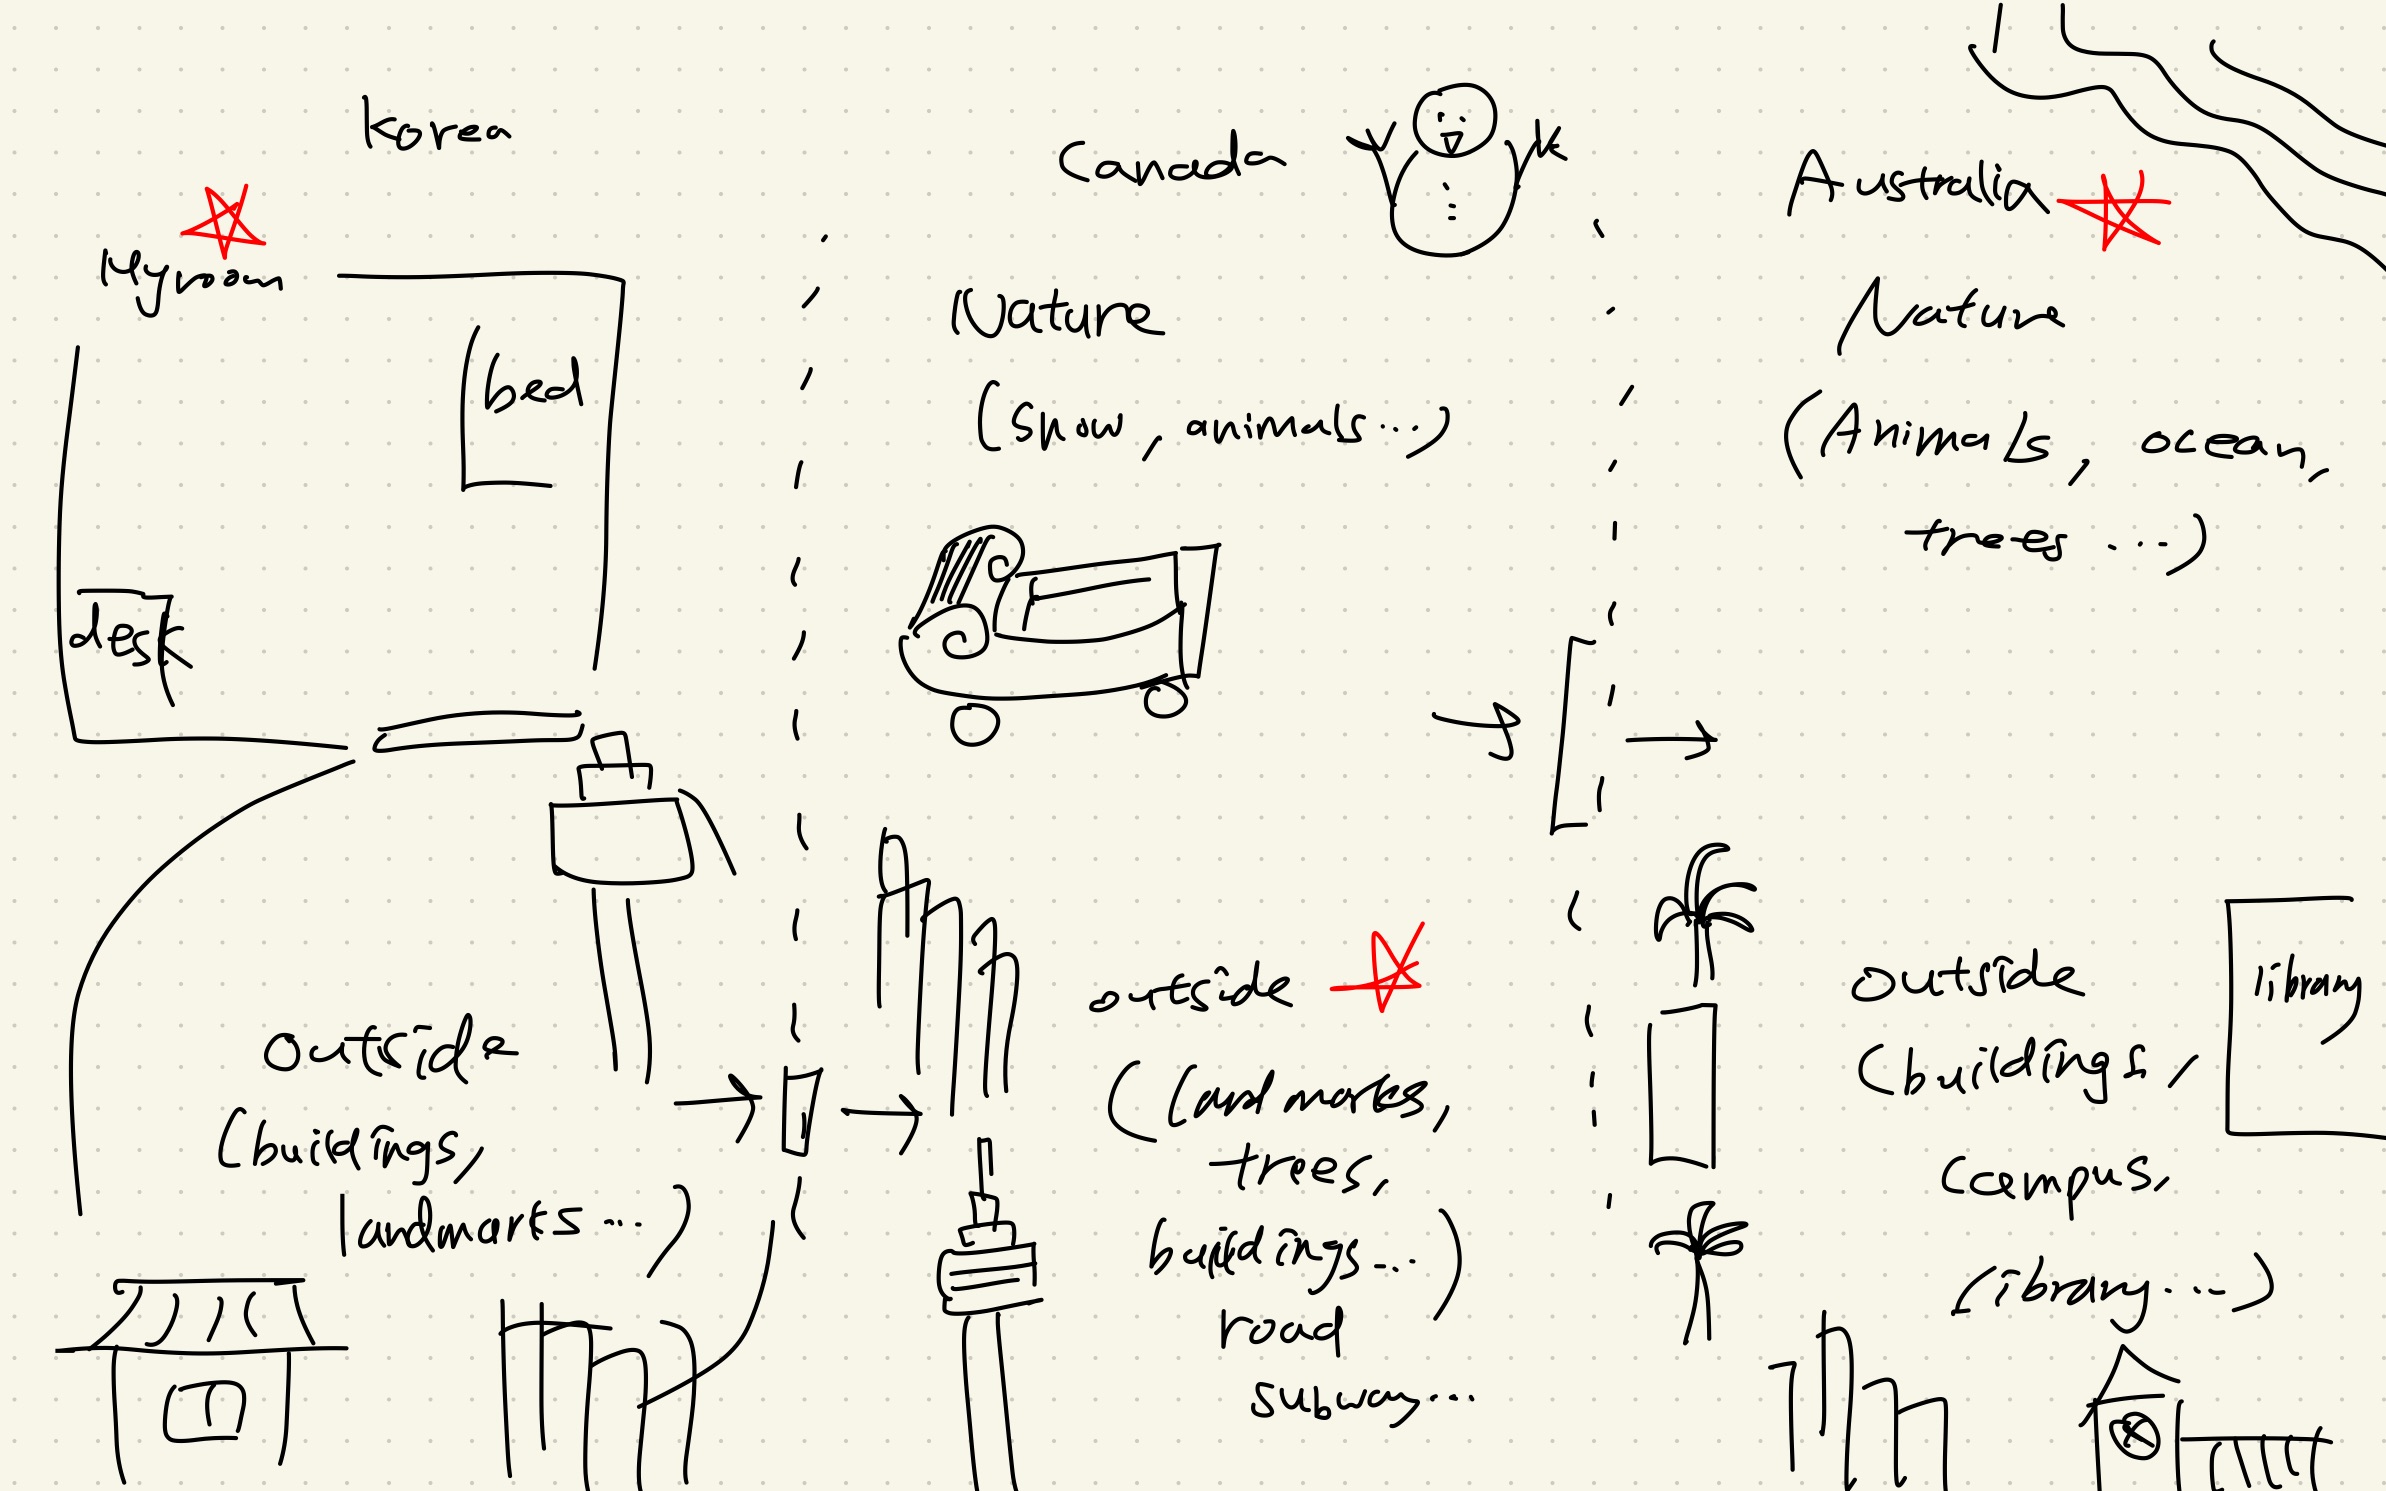 Korea
My room
bed
desk
Outside
(buildings,
landmarks...)
Canada
Nature
(snow, animals...)
outside
(landmarks,
trees,
buildings...)
road
subway...
Australia
Nature
(Animals, ocean,
trees...)
outside
(buildings,
campus,
library...)
library